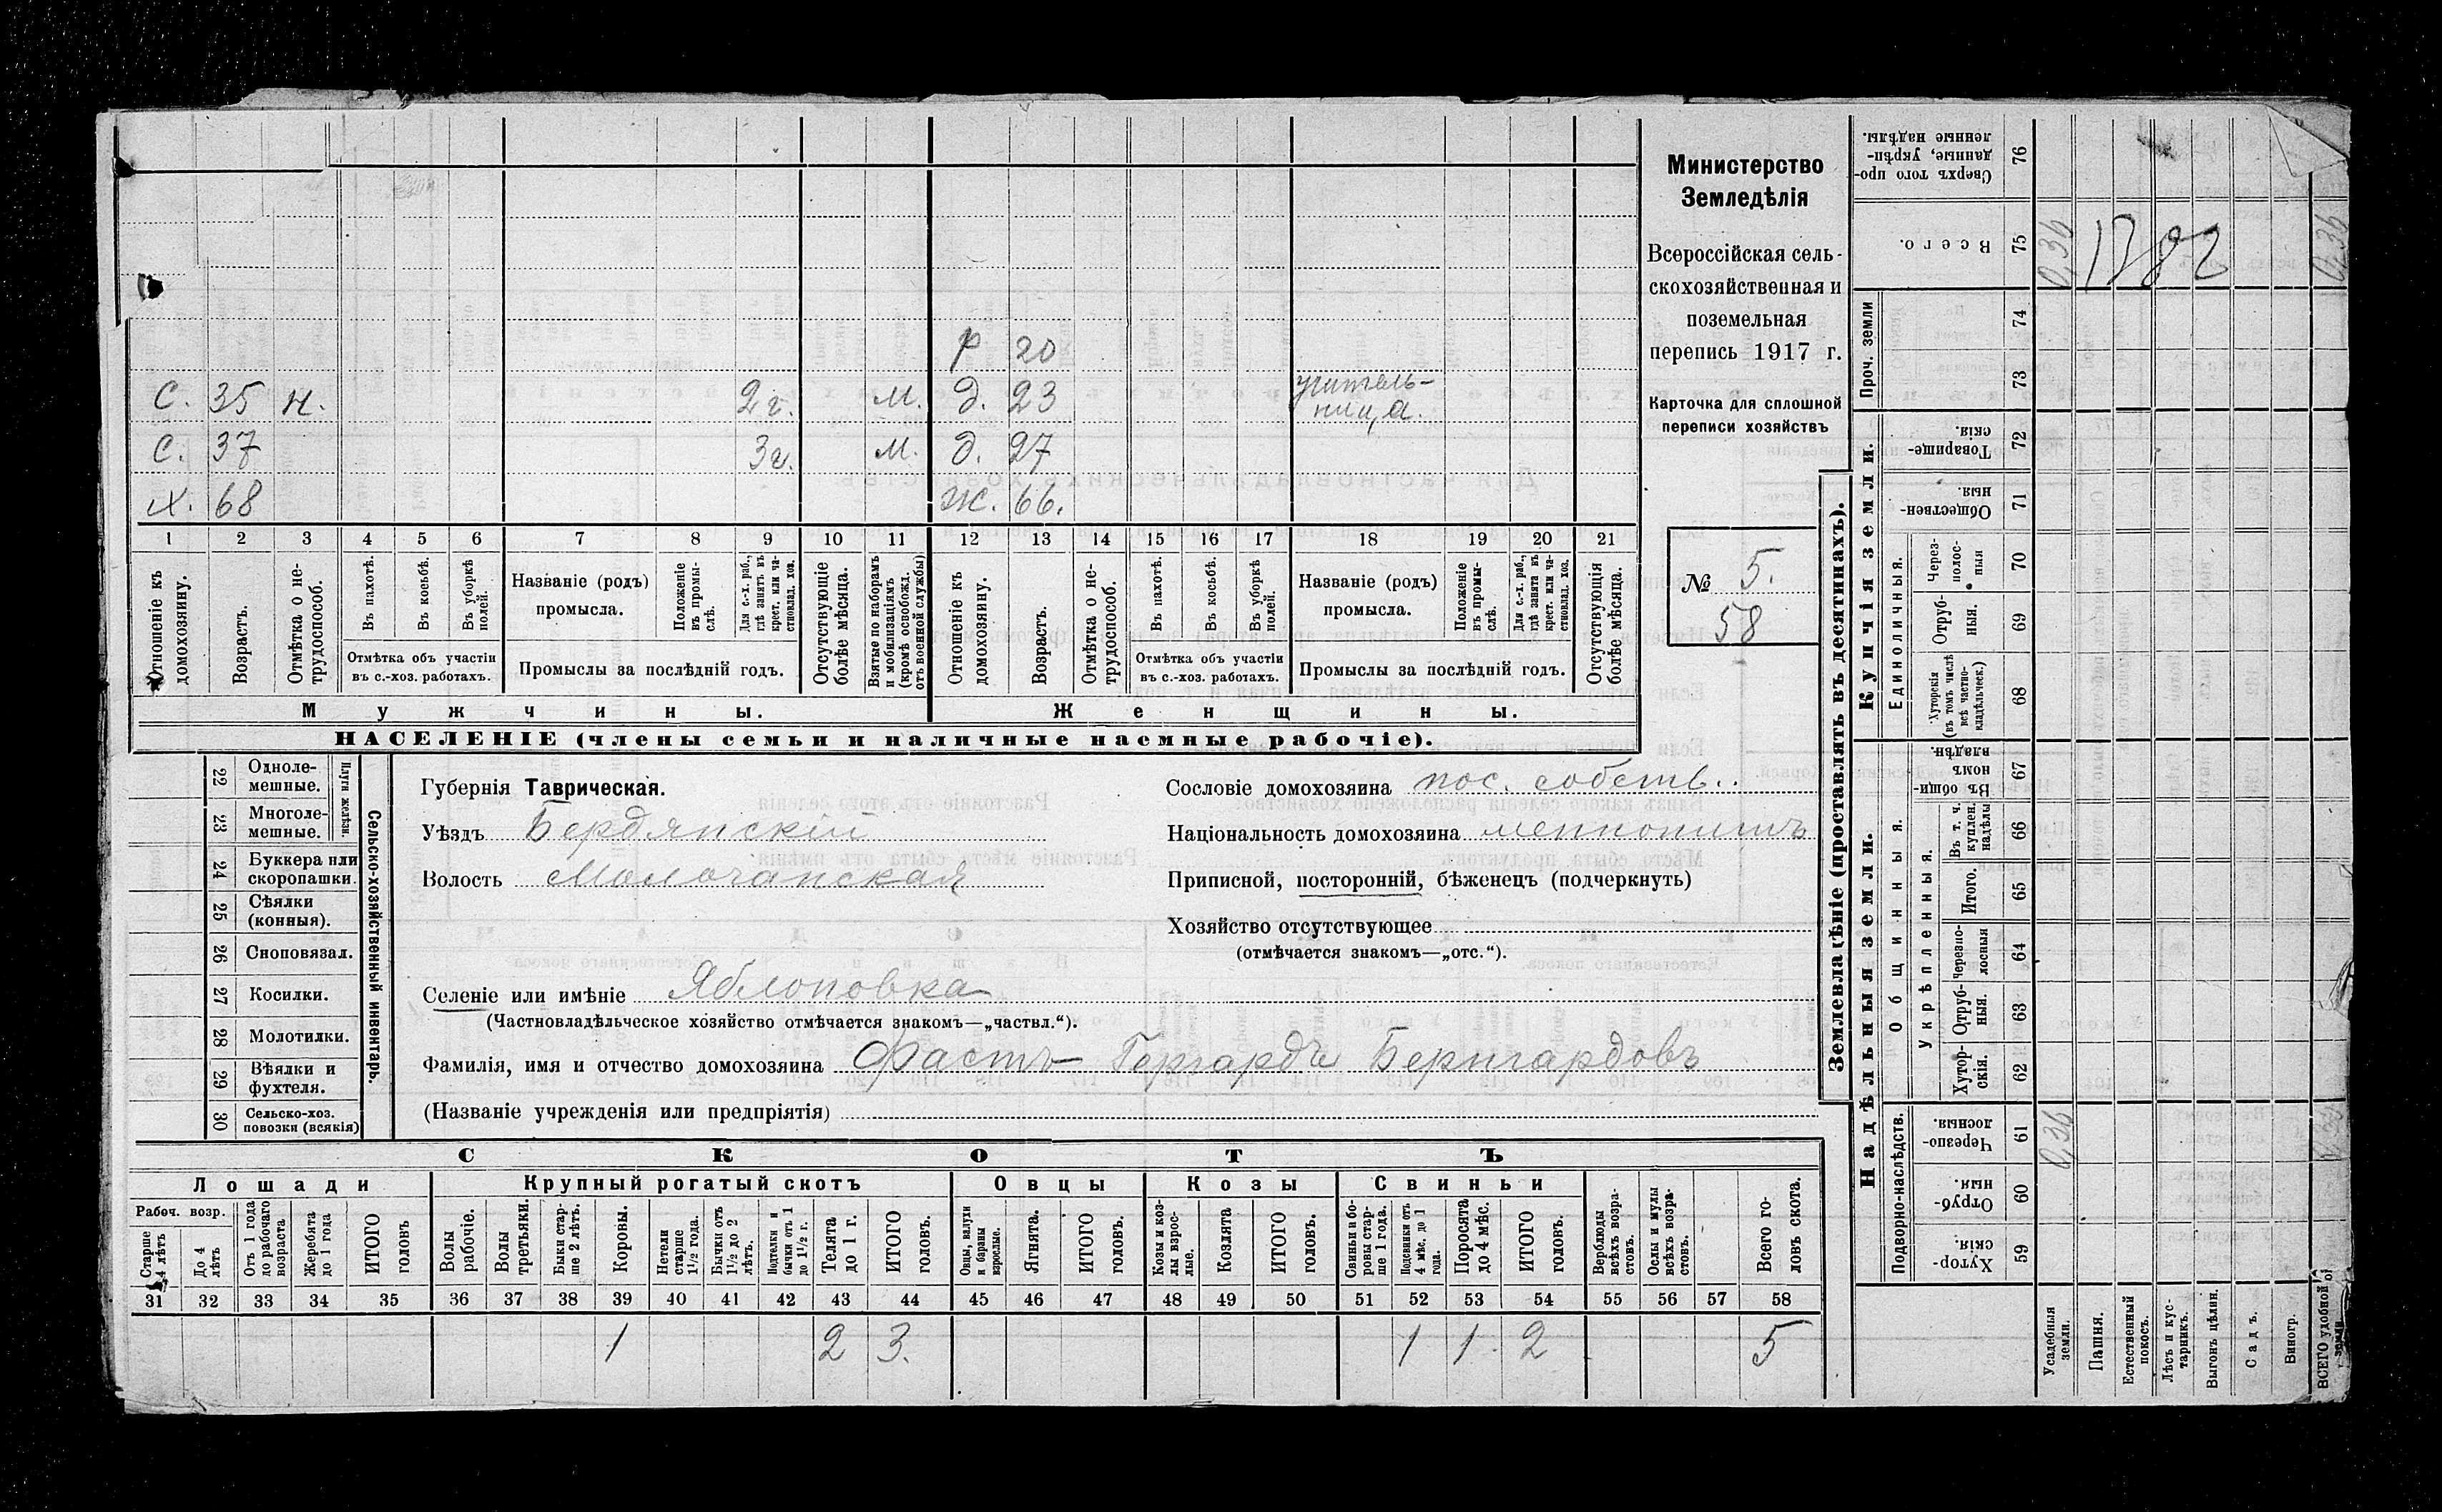 р 20
С. 35 н. 2 г. М. д. 23 учитель-
ница.
С. 37 3 г. М. д. 27
Х. 68 ж. 66.
1 2 3 4 5 6 7 8 9 10 11 12 13 14 15 16 17 18 19 20 21
Отношеніе къ домохозяину.
Возрастъ.
Отмѣтка о не-
трудоспособ.
Въ пахотѣ.
Въ косьбѣ.
Въ уборкѣ
полей.
Отмѣтка объ участіи
въ с.-хоз. работахъ.
Названіе (родъ)
промысла.
Положеніе
въ промы-
слѣ.
Для с.-х. раб.,
гдѣ занятъ въ
крест. или ча-
стновлад. хоз.
Промыслы за послѣдній годъ.
Отсутствующіе
болѣе мѣсяца.
Взятые по наборамъ
и мобилизаціямъ
(кромѣ освобожд.
отъ военной службы)
Отношеніе къ
домохозяину.
Возрастъ.
Отмѣтка о не-
трудоспособ.
Въ пахотѣ.
Въ косьбѣ.
Въ уборкѣ
полей.
Отмѣтка объ участіи
въ с.-хоз. работахъ.
Названіе (родъ)
промысла.
Положеніе
въ промы-
слѣ.
Для с.-х. раб.,
гдѣ занята въ
крест. или ча-
стновлад. хоз.
Промыслы за послѣдній годъ.
Отсутствующія
болѣе мѣсяца.
Мужчины.
Женщины.
НАСЕЛЕНІЕ (члены семьи и наличные наемные рабочіе).
Министерство
Земледѣлія
Всероссійская сель-
скохозяйственная и
поземельная
перепись 1917 г.
Карточка для сплошной
переписи хозяйствъ
№ 5.
58
22 Одноле-
мешные.
23 Многоле-
мешные.
Плуги желѣзн.
24 Буккера или
скоропашки.
25 Сѣялки
(конныя).
26 Сноповязал.
27 Косилки.
28 Молотилки.
29 Вѣялки и
фухтеля.
30 Сельско-хоз.
повозки (всякія)
Сельско-хозяйственный инвентарь.
Губернія Таврическая.
Уѣздъ Бердянскій
Волость Молочанская
Селеніе или имѣніе Яблоновка
(Частновладѣльческое хозяйство отмѣчается знакомъ—„частвл.“).
Фамилія, имя и отчество домохозяина Фастъ Гергардъ Бернгардовъ
(Названіе учрежденія или предпріятія)
Сословіе домохозяина пос. собств.
Національность домохозяина меннонитъ
Приписной, посторонній, бѣженецъ (подчеркнуть)
Хозяйство отсутствующее
(отмѣчается знакомъ—„отс.“).
СКОТЪ
Лошади
Рабоч. возр.
Старше
4 лѣтъ
До 4
лѣтъ
Отъ 1 года
до рабочаго
возраста
Жеребята
до 1 года
ИТОГО
головъ
Крупный рогатый скотъ
Волы
рабочіе.
Волы
третьяки.
Быки стар-
ше 2 лѣтъ.
Коровы.
Нетели
старше
1 1/2 года.
Бычки отъ
1 1/2 до 2
лѣтъ.
Подтелки и
бычки отъ 1
до 1 1/2 г.
Телята
до 1 г.
ИТОГО
головъ.
Овцы
Овцы, валухи
и бараны
взрослые.
Ягнята.
ИТОГО
головъ.
Козы
Козы и коз-
лы взрос-
лые.
Козлята
ИТОГО
головъ.
Свиньи
Свиньи и бо-
ровы стар-
ше 1 года.
Подсвинки отъ
4 мѣс. до 1
года.
Поросята
до 4 мѣс.
ИТОГО
головъ.
Верблюды
всѣхъ возра-
стовъ.
Ослы и мулы
всѣхъ возра-
стовъ.
Всего го-
ловъ скота.
31 32 33 34 35 36 37 38 39 40 41 42 43 44 45 46 47 48 49 50 51 52 53 54 55 56 57 58
1 2 3. 1 1 2 5
Землевладѣніе (проставлять въ десятинахъ).
Сверхъ того про-
данные, укрѣп-
ленные надѣлы.
76
Всего.
75 0,36 1782 0,36
Проч. земли
74
73
Купчія земли.
Товарище-
скія.
72
Обществен-
ныя.
71
Единоличныя.
Через-
полос-
ныя
70
Отруб-
ныя.
69
Хуторскія
(въ томъ числѣ
всѣ частно-
владѣльческ.)
68
Надѣльныя земли.
Общинныя.
Въ общин-
номъ
владѣн.
67
Укрѣпленныя.
Въ т. ч.
куплен.
надѣлы
66
Итого.
65
Черезпо-
лосныя
64
Отруб-
ныя.
63
Хутор-
скія.
62
Подворно-наслѣдств.
Черезпо-
лосныя.
61 0,36 0,36
Отруб-
ныя.
60
Хутор-
скія.
59
Усадебныя
земли.
Пашня.
Естественный
покосъ.
Лѣсъ и кус-
тарникъ.
Выгонъ цѣлин.
Садъ.
Виногр.
ВСЕГО удобной
земли